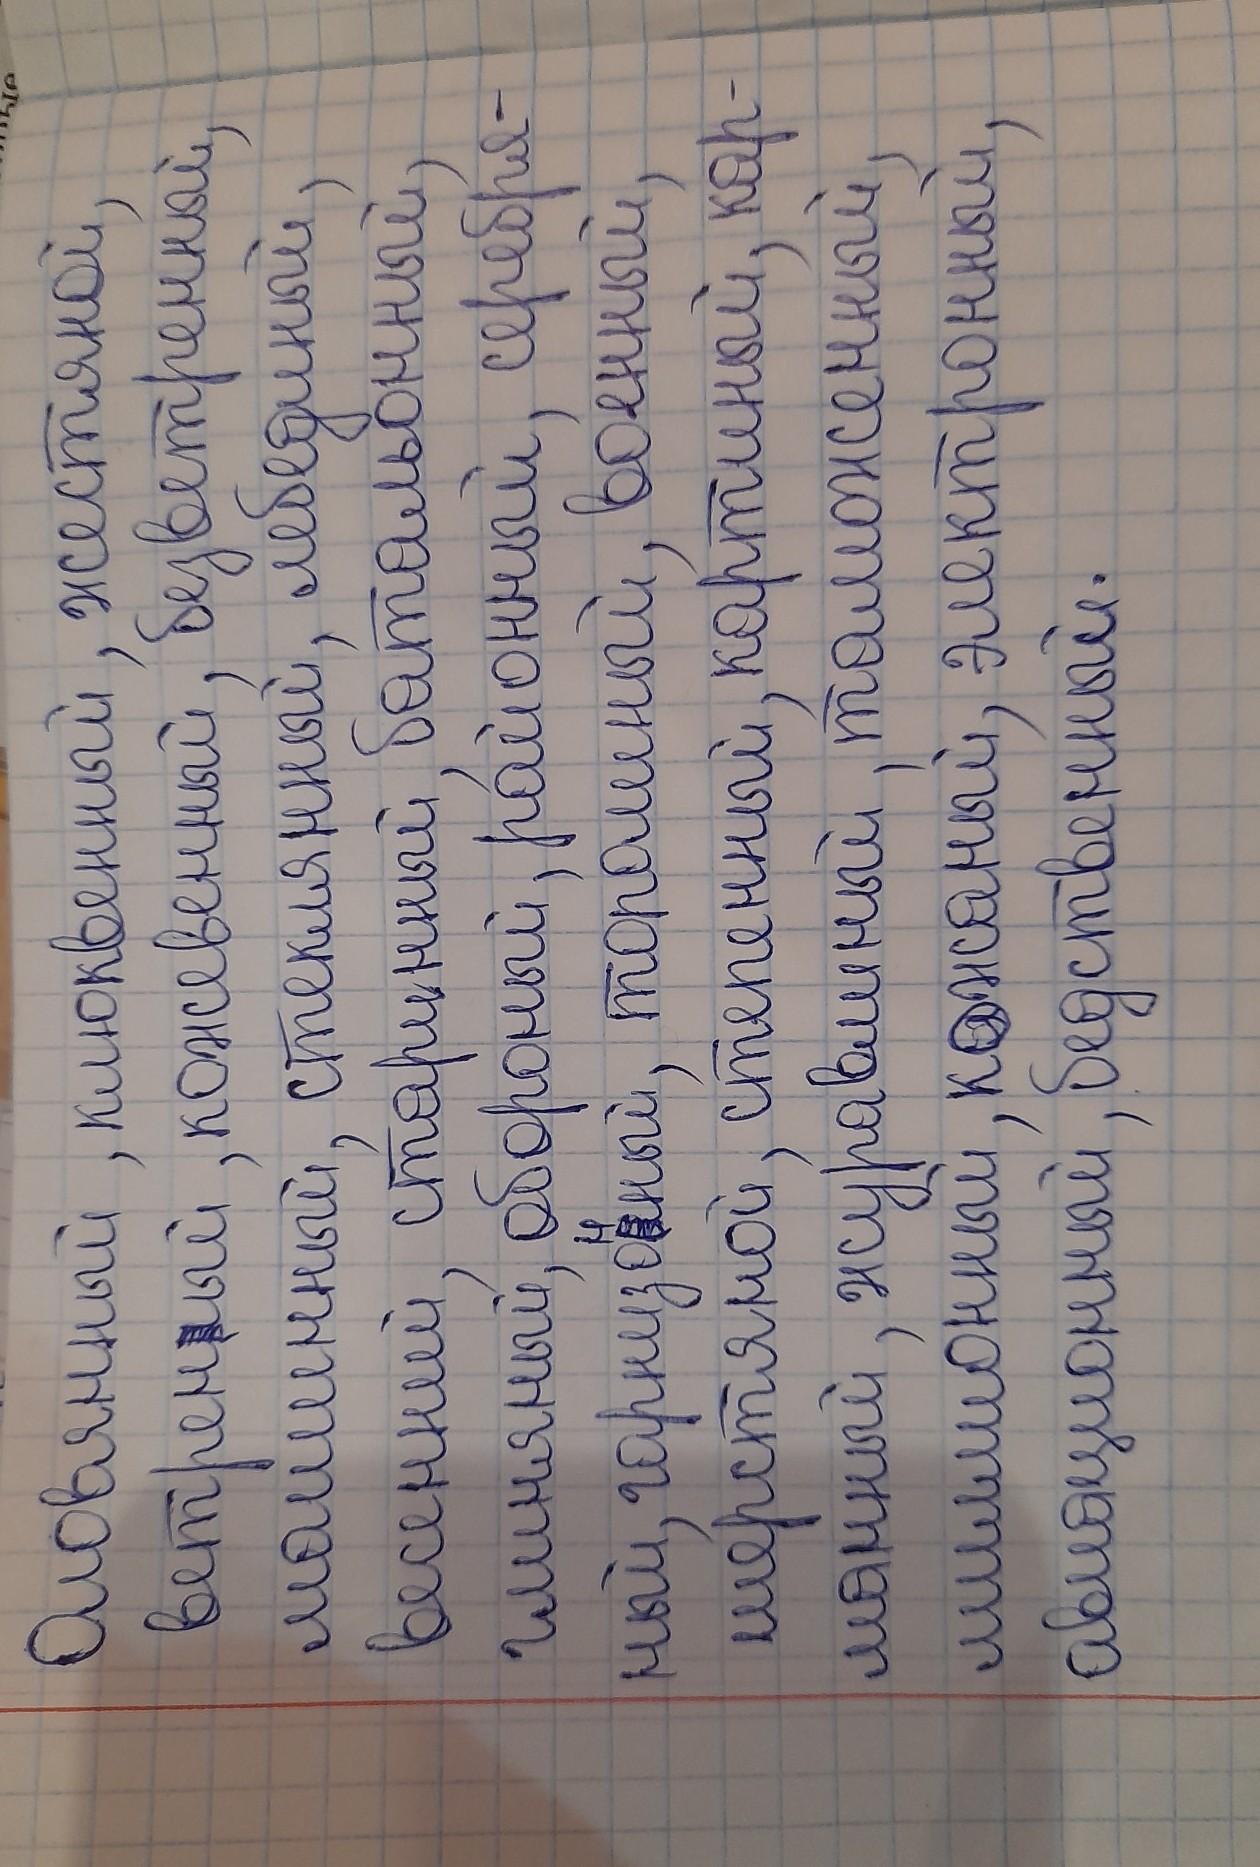 Оловянный, клюквенный, жестяной,
ветреный, кожевенный, безветренный,
малинный, стеклянный, лебединый,
весенний, старинный, батальонный,
глиняный, обороный, районный, серебря-
ный, гарнизонный, торопиный, военный,
шерстяной, степенный, картиный, кар-
манный, журавлиный, таможенный,
миллионный, кожаный, электронный,
авиационный, бедственный.